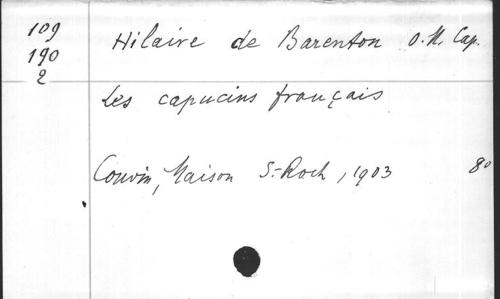 109
190
2
Hilaire de Barenton O. M. Cap.
Les capucins français
Couvin, Maison S.-Roch, 1903 8°